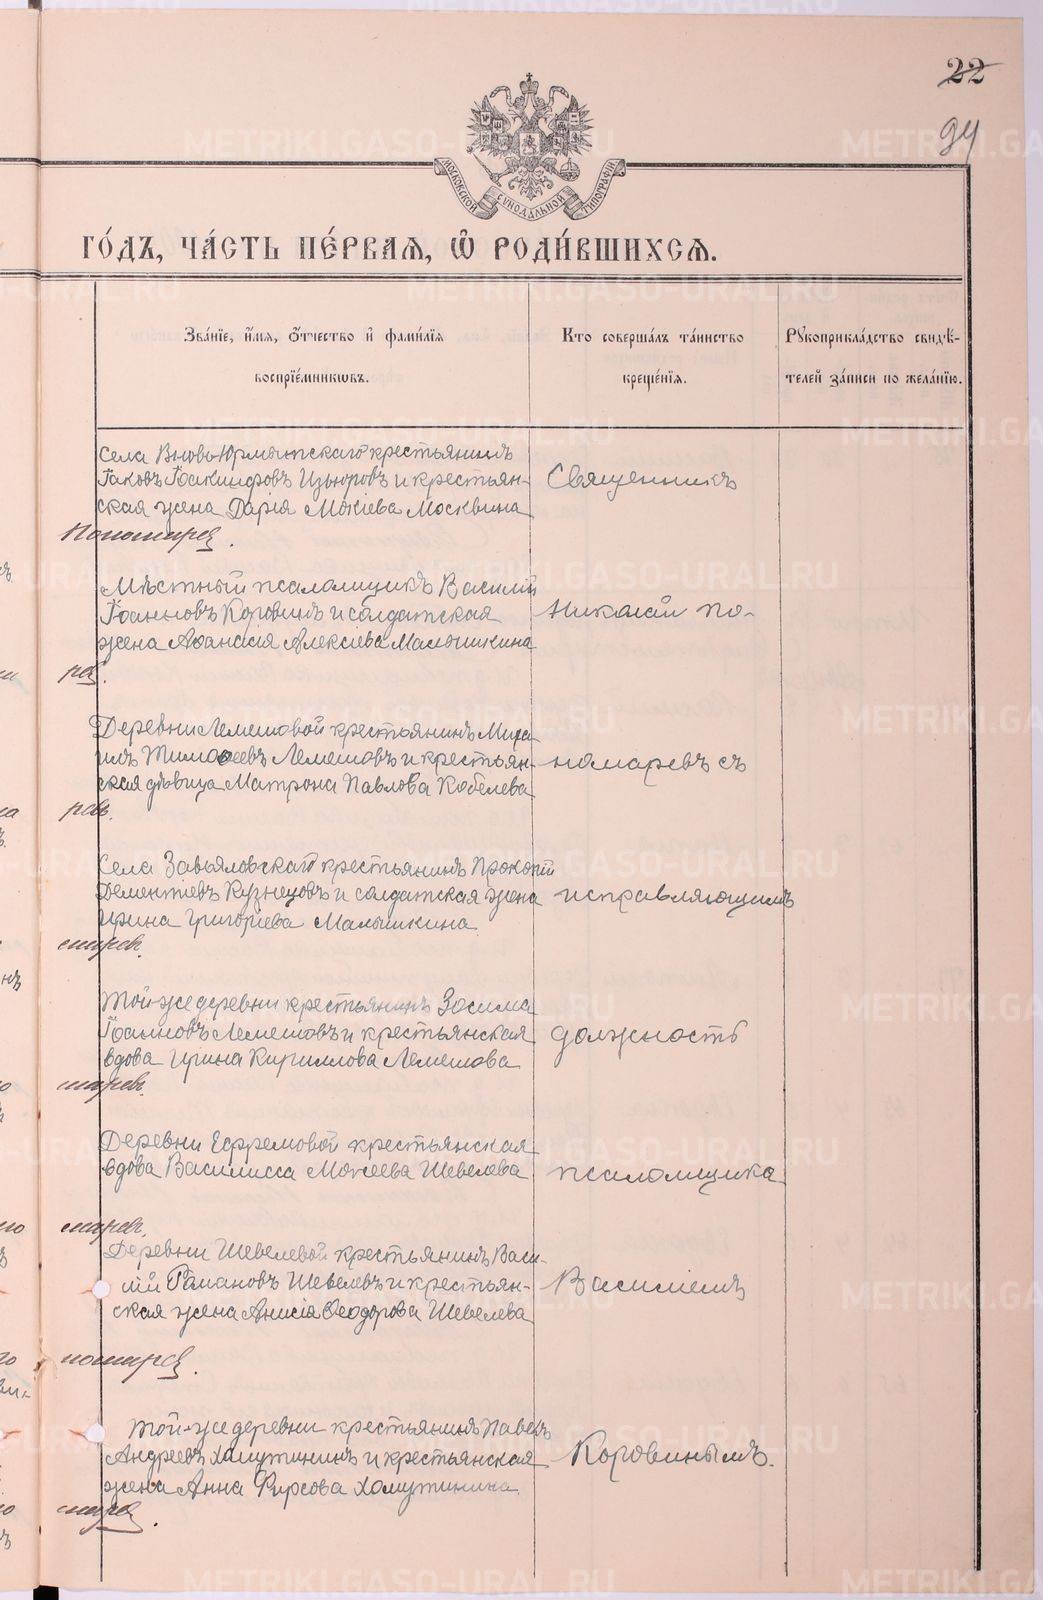 22
94
МОСКОВСКОЙ СѴНОДАЛЬНОЙ ТИПОГРАФІИ
ГО́ДЪ, ЧА́СТЬ ПЕ́РВАЯ, Ѽ РОДИ́ВШИХСЯ.
Зва́нїе, и҆́мя, ѻ҆́тчество и҆ фами́лїя
воспрїе́мникѡвъ.
Кто соверша́лъ та́инство
креще́нїя.
Рꙋкоприкла́дство свидѣ́-
телей за́писи по жела́нїю.
Села Вновь-Юрмытскаго крестьянинъ
Іаковъ Іоакинфовъ Изюровъ и крестьян-
ская жена Дарія Мокіева Москвина
Священникъ
Мѣстный псаломщикъ Василій
Іоанновъ Коровинъ и солдатская
жена Аѳанасія Алексіева Малышкина
Николай По-
Деревни Лемешовой крестьянинъ Миха
илъ Тимоѳеевъ Лемешовъ и крестьян-
ская дѣвица Матрона Павлова Кобелева
номаревъ съ
Села Завьяловскаго крестьянинъ Прокопій
Дементіевъ Кузнецовъ и солдатская жена
Ирина Григоріева Малышкина.
исправляющимъ
Той-же деревни крестьянинъ Зосима
Іоанновъ Лемешовъ и крестьянская
вдова Ирина Кириллова Лемешова
должность
Деревни Ефремовой крестьянская
вдова Василисса Мокеева Шевелева
псаломщика
Деревни Шевелевой крестьянинъ Васи-
лій Романовъ Шевелевъ и крестьян-
ская жена Анисія Ѳеодорова Шевелева
Василіемъ
Той-же деревни крестьянинъ Павелъ
Андреевъ Хомутининъ и крестьянская
жена Анна Фирсова Хомутинина
Коровинымъ.
METRIKI.GASO-URAL.RU